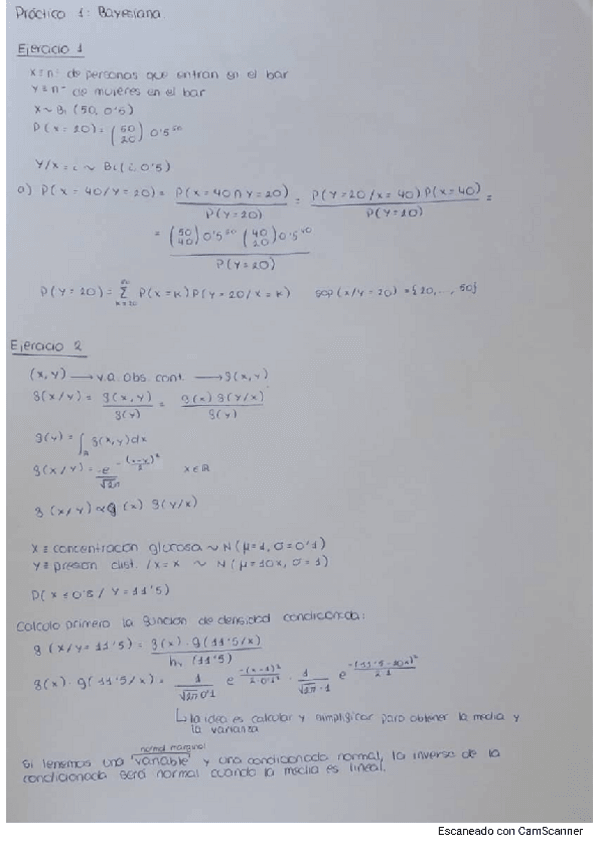 Práctico 1: Bayesiana.
Ejercicio 1
x ≡ nº de personas que entran en el bar
y ≡ nº de mujeres en el bar
x ~ Bi (50, 0'5)
P(x = 20) = (50 20) 0'5^50
Y/x = i ~ Bi(i, 0'5)
a) P(x = 40/Y = 20) = P(x = 40 ∩ Y = 20) / P(Y = 20) = P(Y = 20/x = 40) P(x = 40) / P(Y = 20) =
= (50 40) 0'5^50 (40 20) 0'5^40 / P(Y = 20)
P(Y = 20) = Σ P(x = k) P(Y = 20/x = k) sop(x/Y = 20) = {20, ..., 50}
Ejercicio 2
(x, y) → v.a. obs. cont. → f(x, y)
f(x/y) = f(x, y) / f(y) = g(x) f(y/x) / f(y)
f(y) = ∫ f(x, y) dx
x ∈ R
f(x/y) ∝ g(x) f(y/x)
x ≡ concentración glucosa ~ N(μ = 1, σ = 0'1)
y ≡ presión dist. /x = x ~ N(μ = 10x, σ = 1)
Calculo primero la función de densidad condicionada:
f(x/y = 11'5) = f(x) · g(11'5/x) / h(11'5)
f(x) · g(11'5/x) = 1/√2π 0'1 e^-(x-1)²/2·0'1² · 1/√2π·1 e^-(11'5-10x)²/2·1
↳ la idea es calcular y simplificar para obtener la media y
la varianza
normal marginal
Si tenemos una "variable" y una condicionada normal, la inversa de la
condicionada será normal cuando la media es lineal.
Escaneado con CamScanner